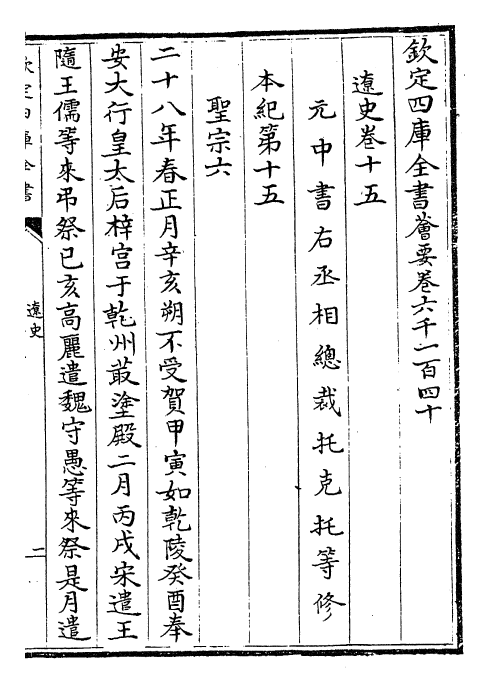 欽定四庫全書薈要卷六千一百四十
遼史卷十五
元中書右丞相總裁托克托等修
本紀第十五
聖宗六
二十八年春正月辛亥朔不受賀甲寅如乾陵癸酉奉
安大行皇太后梓宫于乾州菆塗殿二月丙戌宋遣王
隨王儒等來弔祭己亥高麗遣魏守愚等來祭是月遣
欽定四庫全書
遼史
二